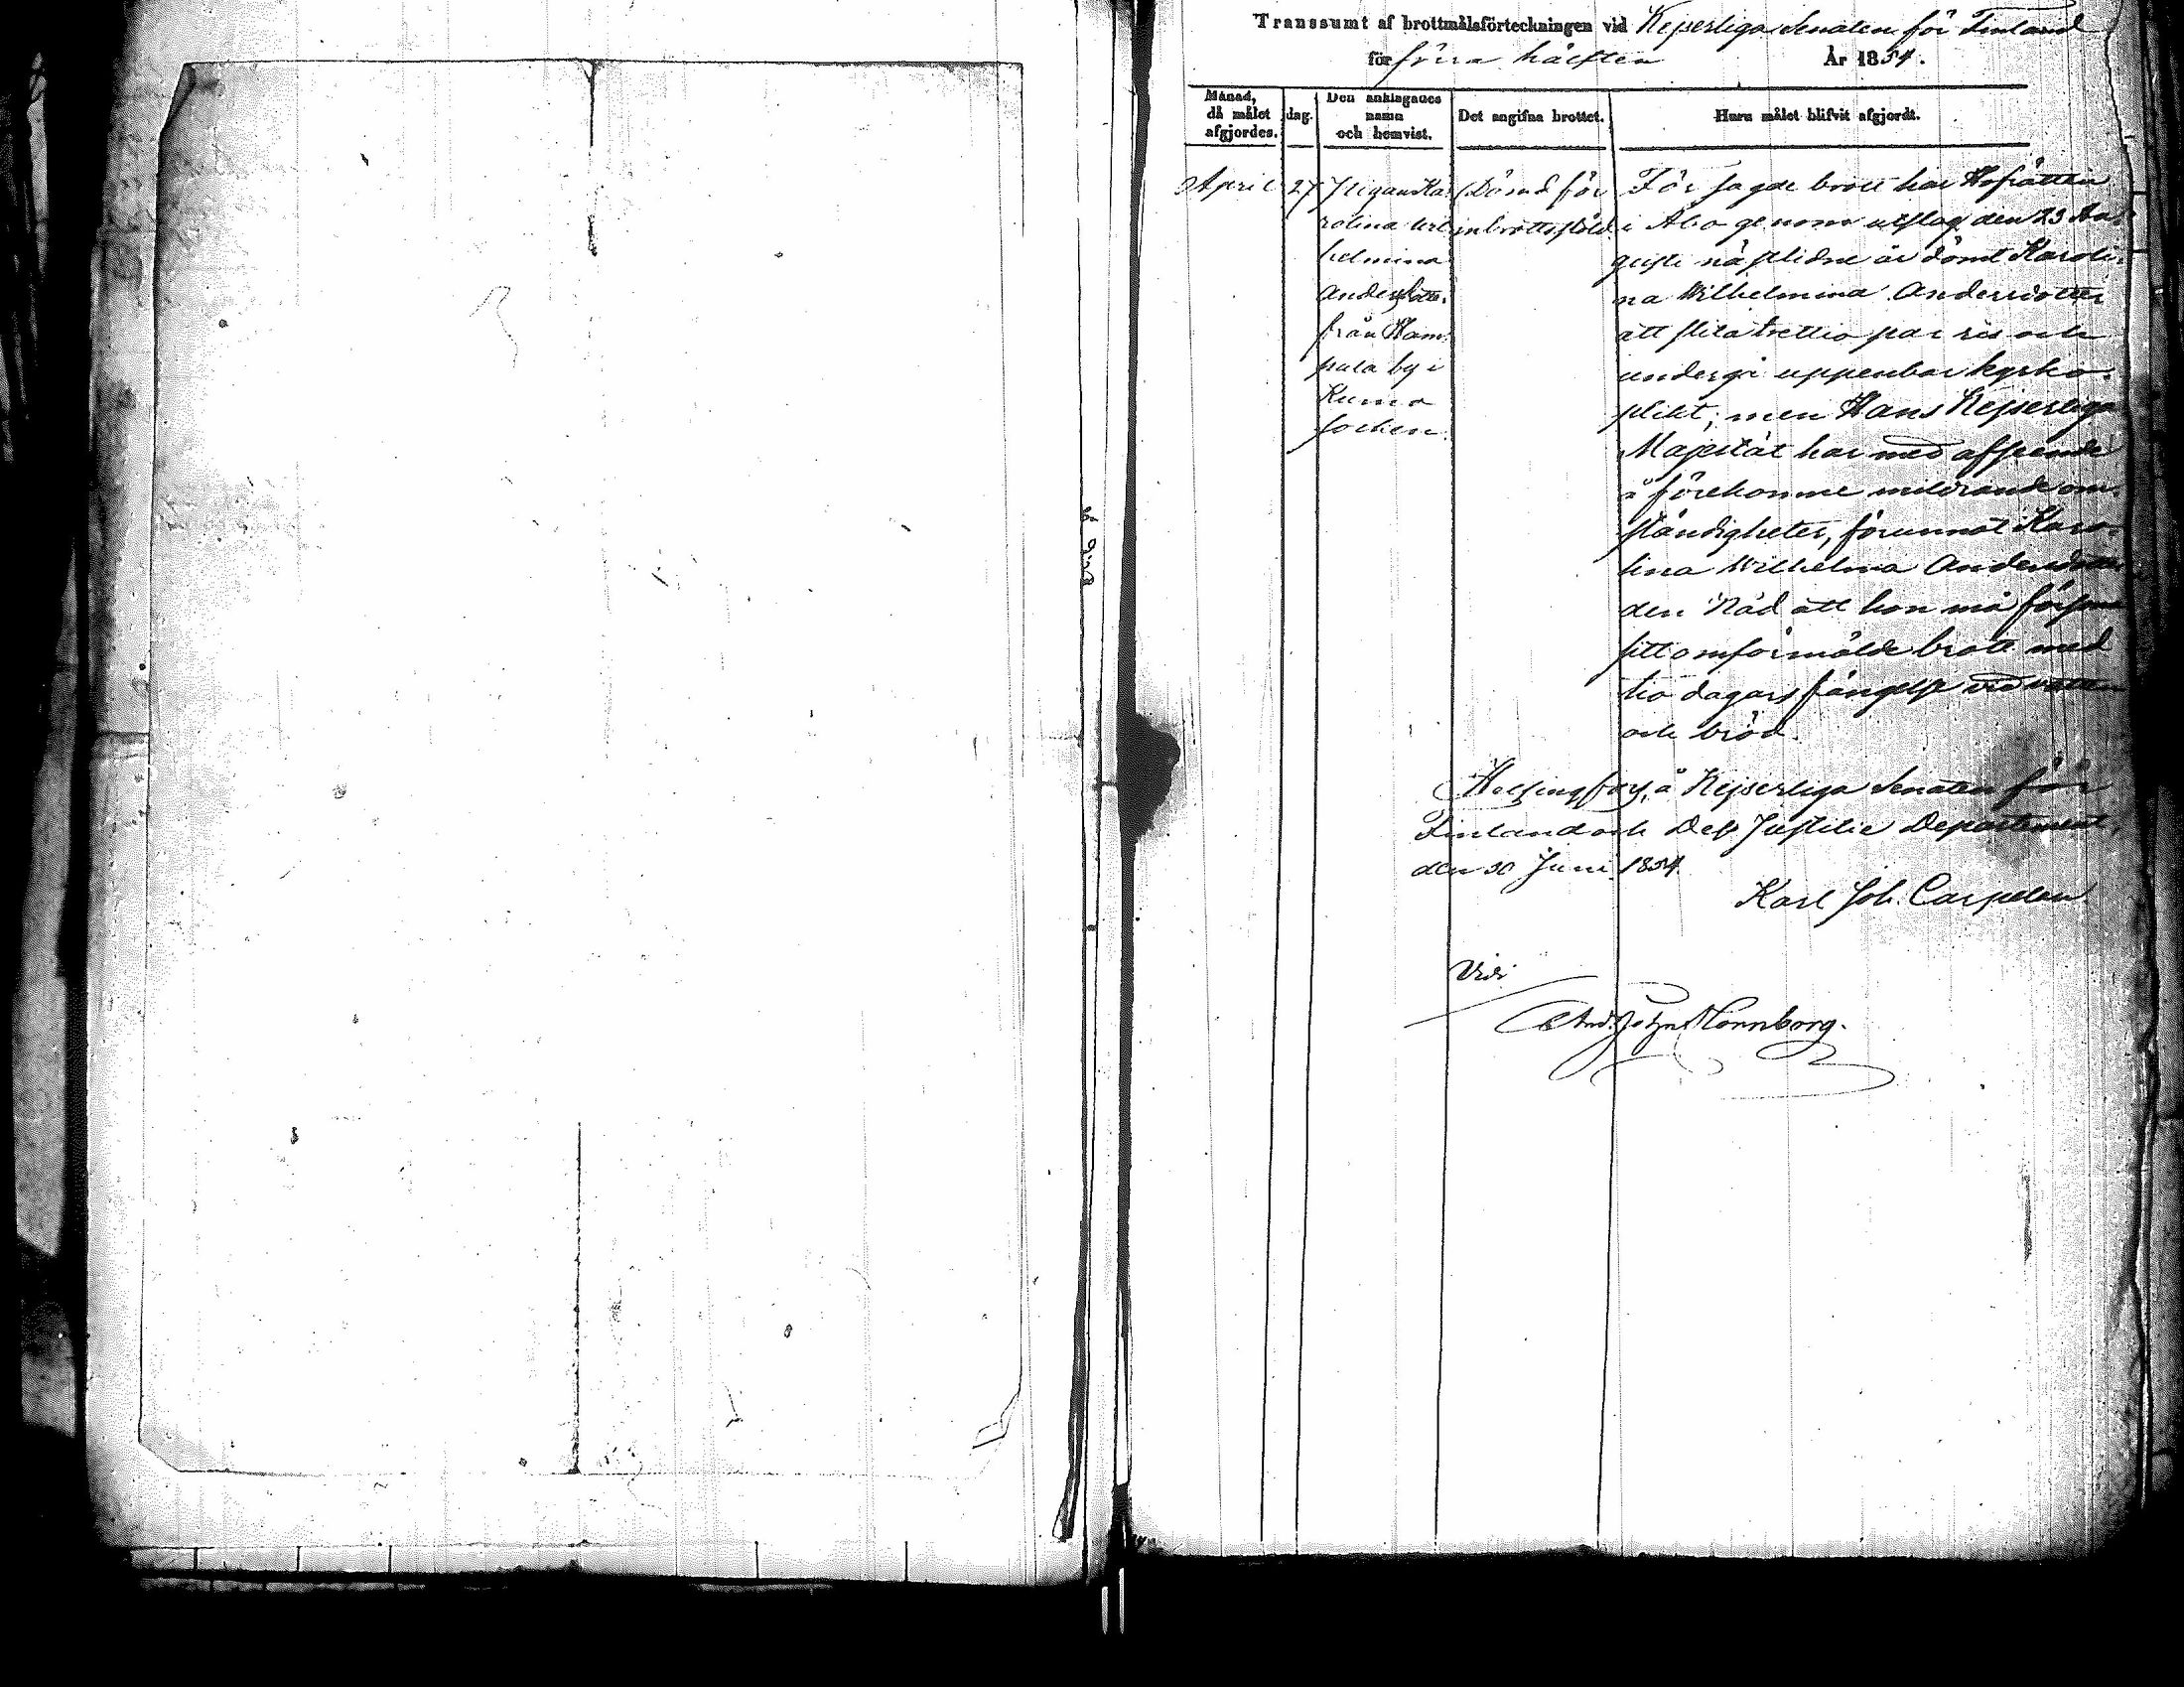 Transsumt af brottmålsförteckningen vid Kejserliga Senaten för Finland
för förra hälften År 1854.
Månad, då målet afgjordes.
dag.
Den anklagades namn och hemvist.
Det angifna brottet.
Huru målet blifvit afgjordt.
April 27
Pigan Ka-
rolina Wil-
helmina
Andersdotter
från Kam-
pala by i
Kumo
socken.
Dömd för
inbrottsstöld.
För sagde brott har Hofrätten
i Åbo genom utslag den 23 Au-
gusti nästlidne år dömt Karoli-
na Wilhelmina Andersdotter
att slita trettio par ris och
undergå uppenbar kyrko-
plikt; men Hans Kejserliga
Majestät har med afseende
å förekomne mildrande om-
ständigheter, förunnat Karo-
lina Wilhelmina Andersdotter
den Nåd att hon må försona
sitt omförmälde brott med
tio dagars fängelse vid vatten
och bröd.
Helsingfors, å Kejserliga Senaten för
Finland och Dess Justitie Departement,
den 30 Juni 1854.
Karl Joh. Carpelan
Vidi
And. Johns Nonnborg.